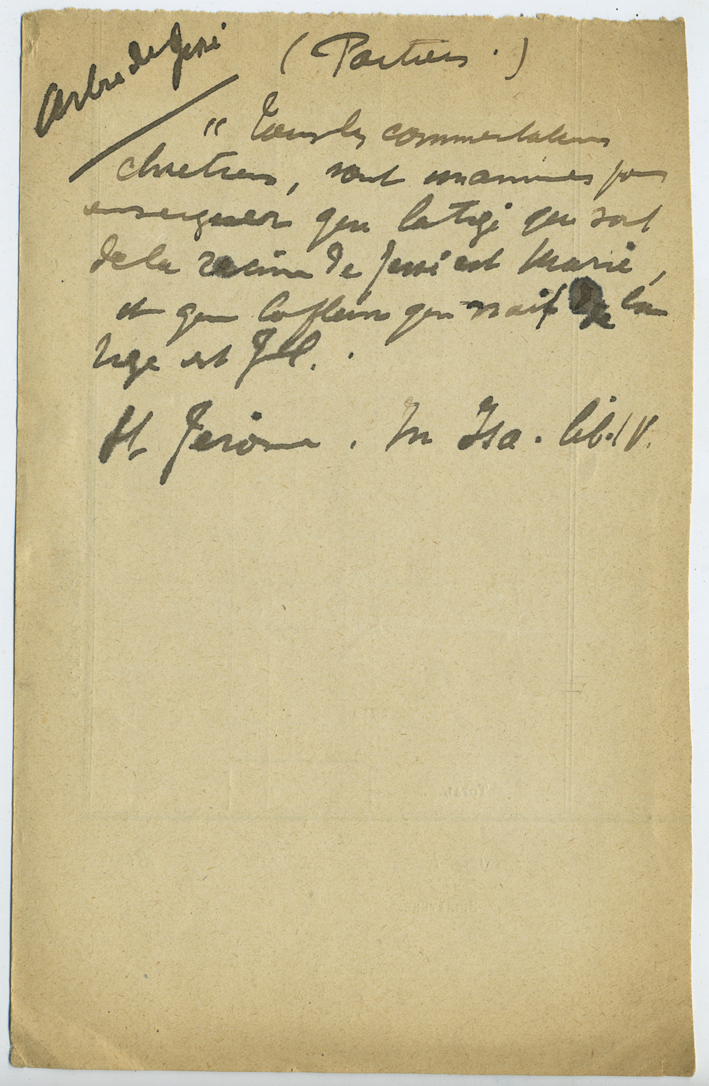 Arbre de Jessé
(Poitiers.)
" Tous les commentateurs
chrétiens, sont unanimes pour
enseigner que la tige qui sort
de la racine de Jessé est Marie,
et que la fleur qui naît de la
tige est
St Jérome. In Isa. lib. IV.